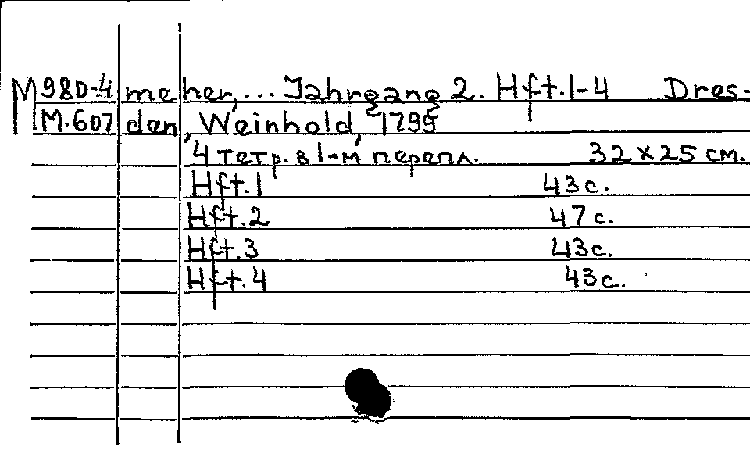 М980-4 me her,... Jahrgang 2. Hft.1-4 Dres-
М.607 den, Weinhold, 1799
4 тетр. в 1-м перепл. 32 x 25 см.
Hft.1 43 с.
Hft.2 47 с.
Hft.3 43с.
Hft.4 43 с.